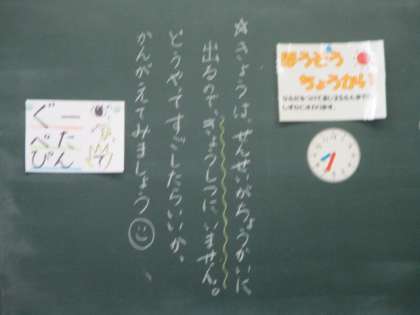 ほうそう
ちょうかい
☆きょうは、せんせいがちょうかいに
出るので、きょうしつにいません。
どうやってすごしたらいいか、
かんがえてみましょう
ぐー
ぺた
ぴん